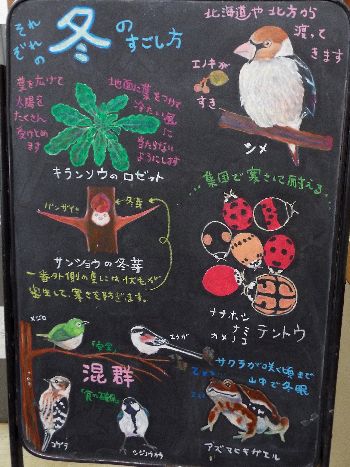 それ
ぞれの
冬のすごし方
北海道や北方から
渡って
きます
エノキが
すき
シメ
葉を広げて
太陽を
たくさん
受けとめ
ます
地面に葉をつけて
冷たい風
に
当たらない
ようにします
キランソウのロゼット
冬芽
バンザイ
サンショウの冬芽
一番外側の
寒さを防ぎます。
集団で寒さに耐える
ナナホシ
ナミ
カメノコ
テントウ
メジロ
エナガ
混群
コゲラ
シジュウカラ
サクラが咲く頃まで
山中で冬眠
アズマヒキガエル